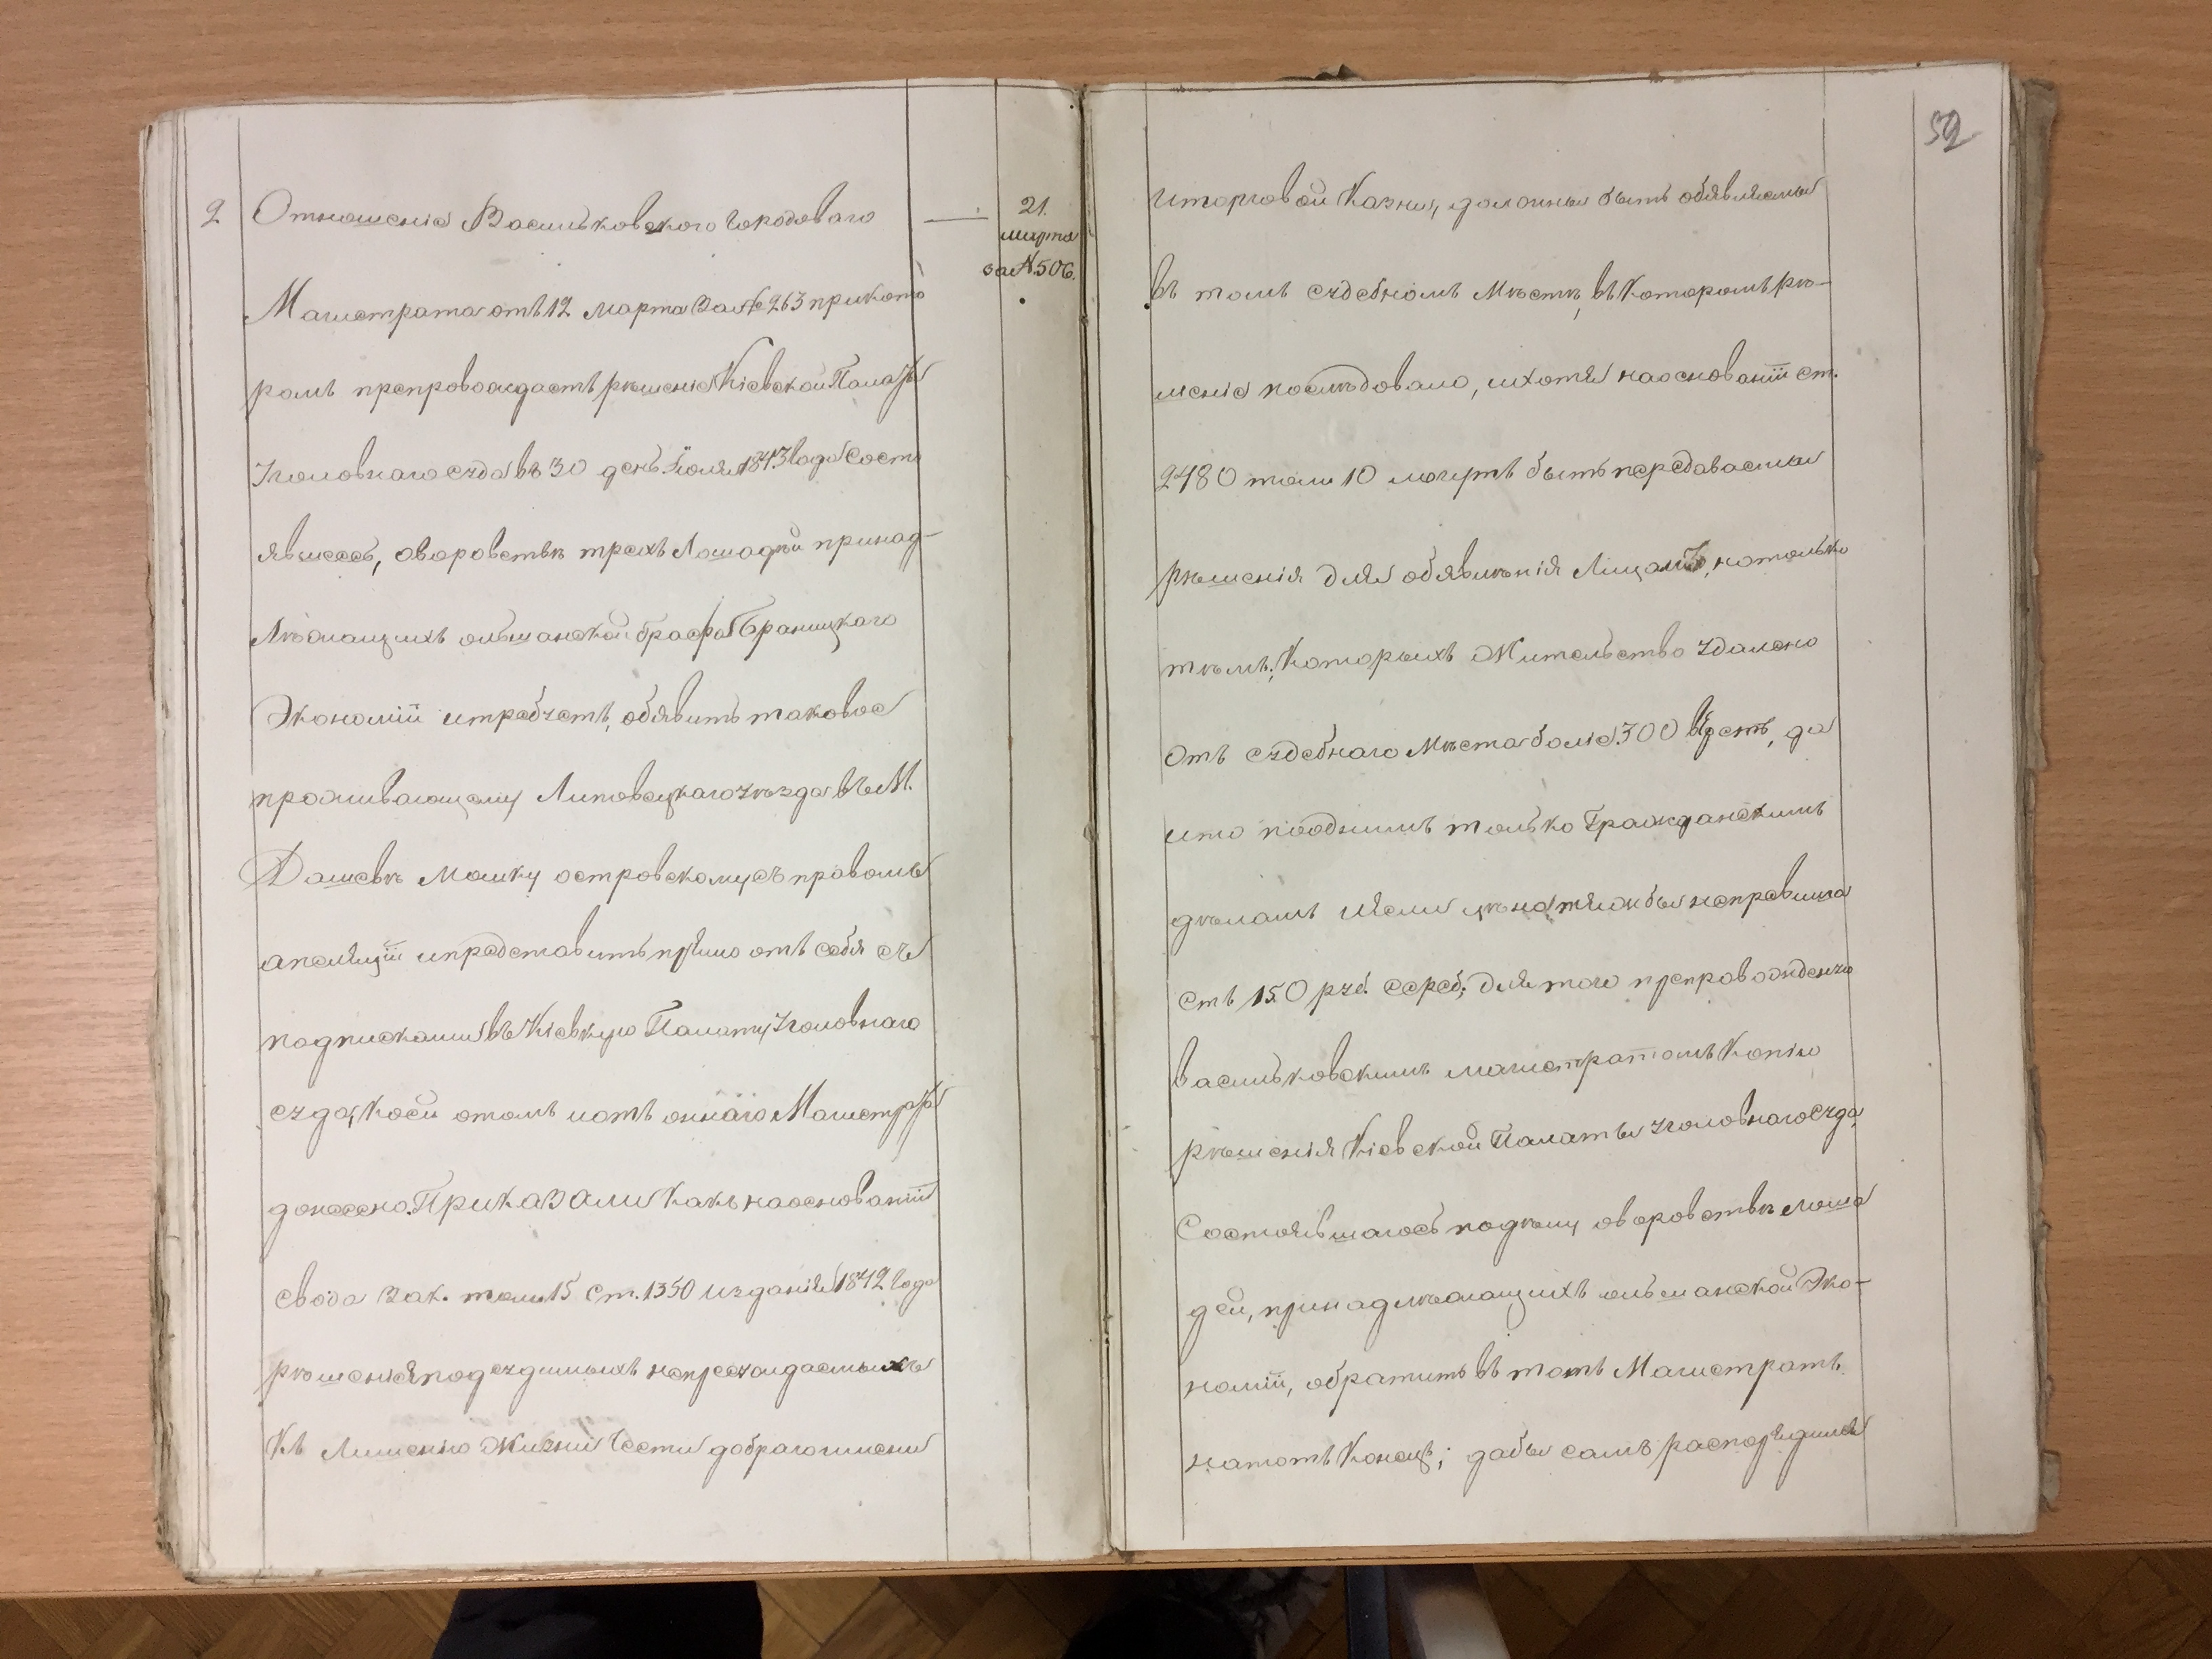 2 Отношеніе Васильковского Городоваго
21.
марта
за №. 506.
Магистрата отъ 12 марта За № 263 прикото
ромъ препровождаетъ рѣшеніе Кіевской Палаты
Уголовнаго суда въ 30 день Іюля 1843 года Состо
явшеесь, оворовствѣ трехъ Лошадей принад-
Лѣжащихъ ольшанской графа Браницкаго
Экономіи итребуетъ, обявить таковое
проживающему Липовецкаго уѣзда въ М.
Дашевѣ Мошку островскому съ правомъ
апеляціи ипредставить прямо отъ себя съ
подписками въ Кіевкую Палату Уголовнаго
суда, коей отомъ иотъ оннаго Магистрата
донесено. Приказали Какъ наоснованіи
Свода Зак. тома 15 Ст. 1350 изданія 1842 года
рѣшенія подсудимыхъ непресуждаемыхъ
Къ Лишенію Жизни Чести добраго имени
52
иторговой Казни, должны быть обявляемы
въ томъ судебномъ Мѣстѣ, въ Которомъ рѣ-
шеніе послѣдовало, ихотя наоснованіи ст.
2480 тома 10 могутъ быть передаваемы
рѣшенія для обявлѣнія Лицамъ, нотолько
тѣмъ; Которыхъ Жительство удалено
Отъ судебнаго Мѣста боліе 300 верстъ, да
ито поодними только Гражданскимъ
дѣламъ иЯсли цѣна тяжбы непревыша
етъ 150 руб. сереб; для того препровожденую
Васильковскимъ магистратомъ Копію
рѣшенія Кіевской Палаты Уголовнаго суда,
Состоявшагось подѣлу оворовствѣ лоша
дей, принадлѣжащихъ ольшанской Эко-
номіи, обратить въ тотъ Магистратъ
натотъ Конецъ; дабы самъ распорядился